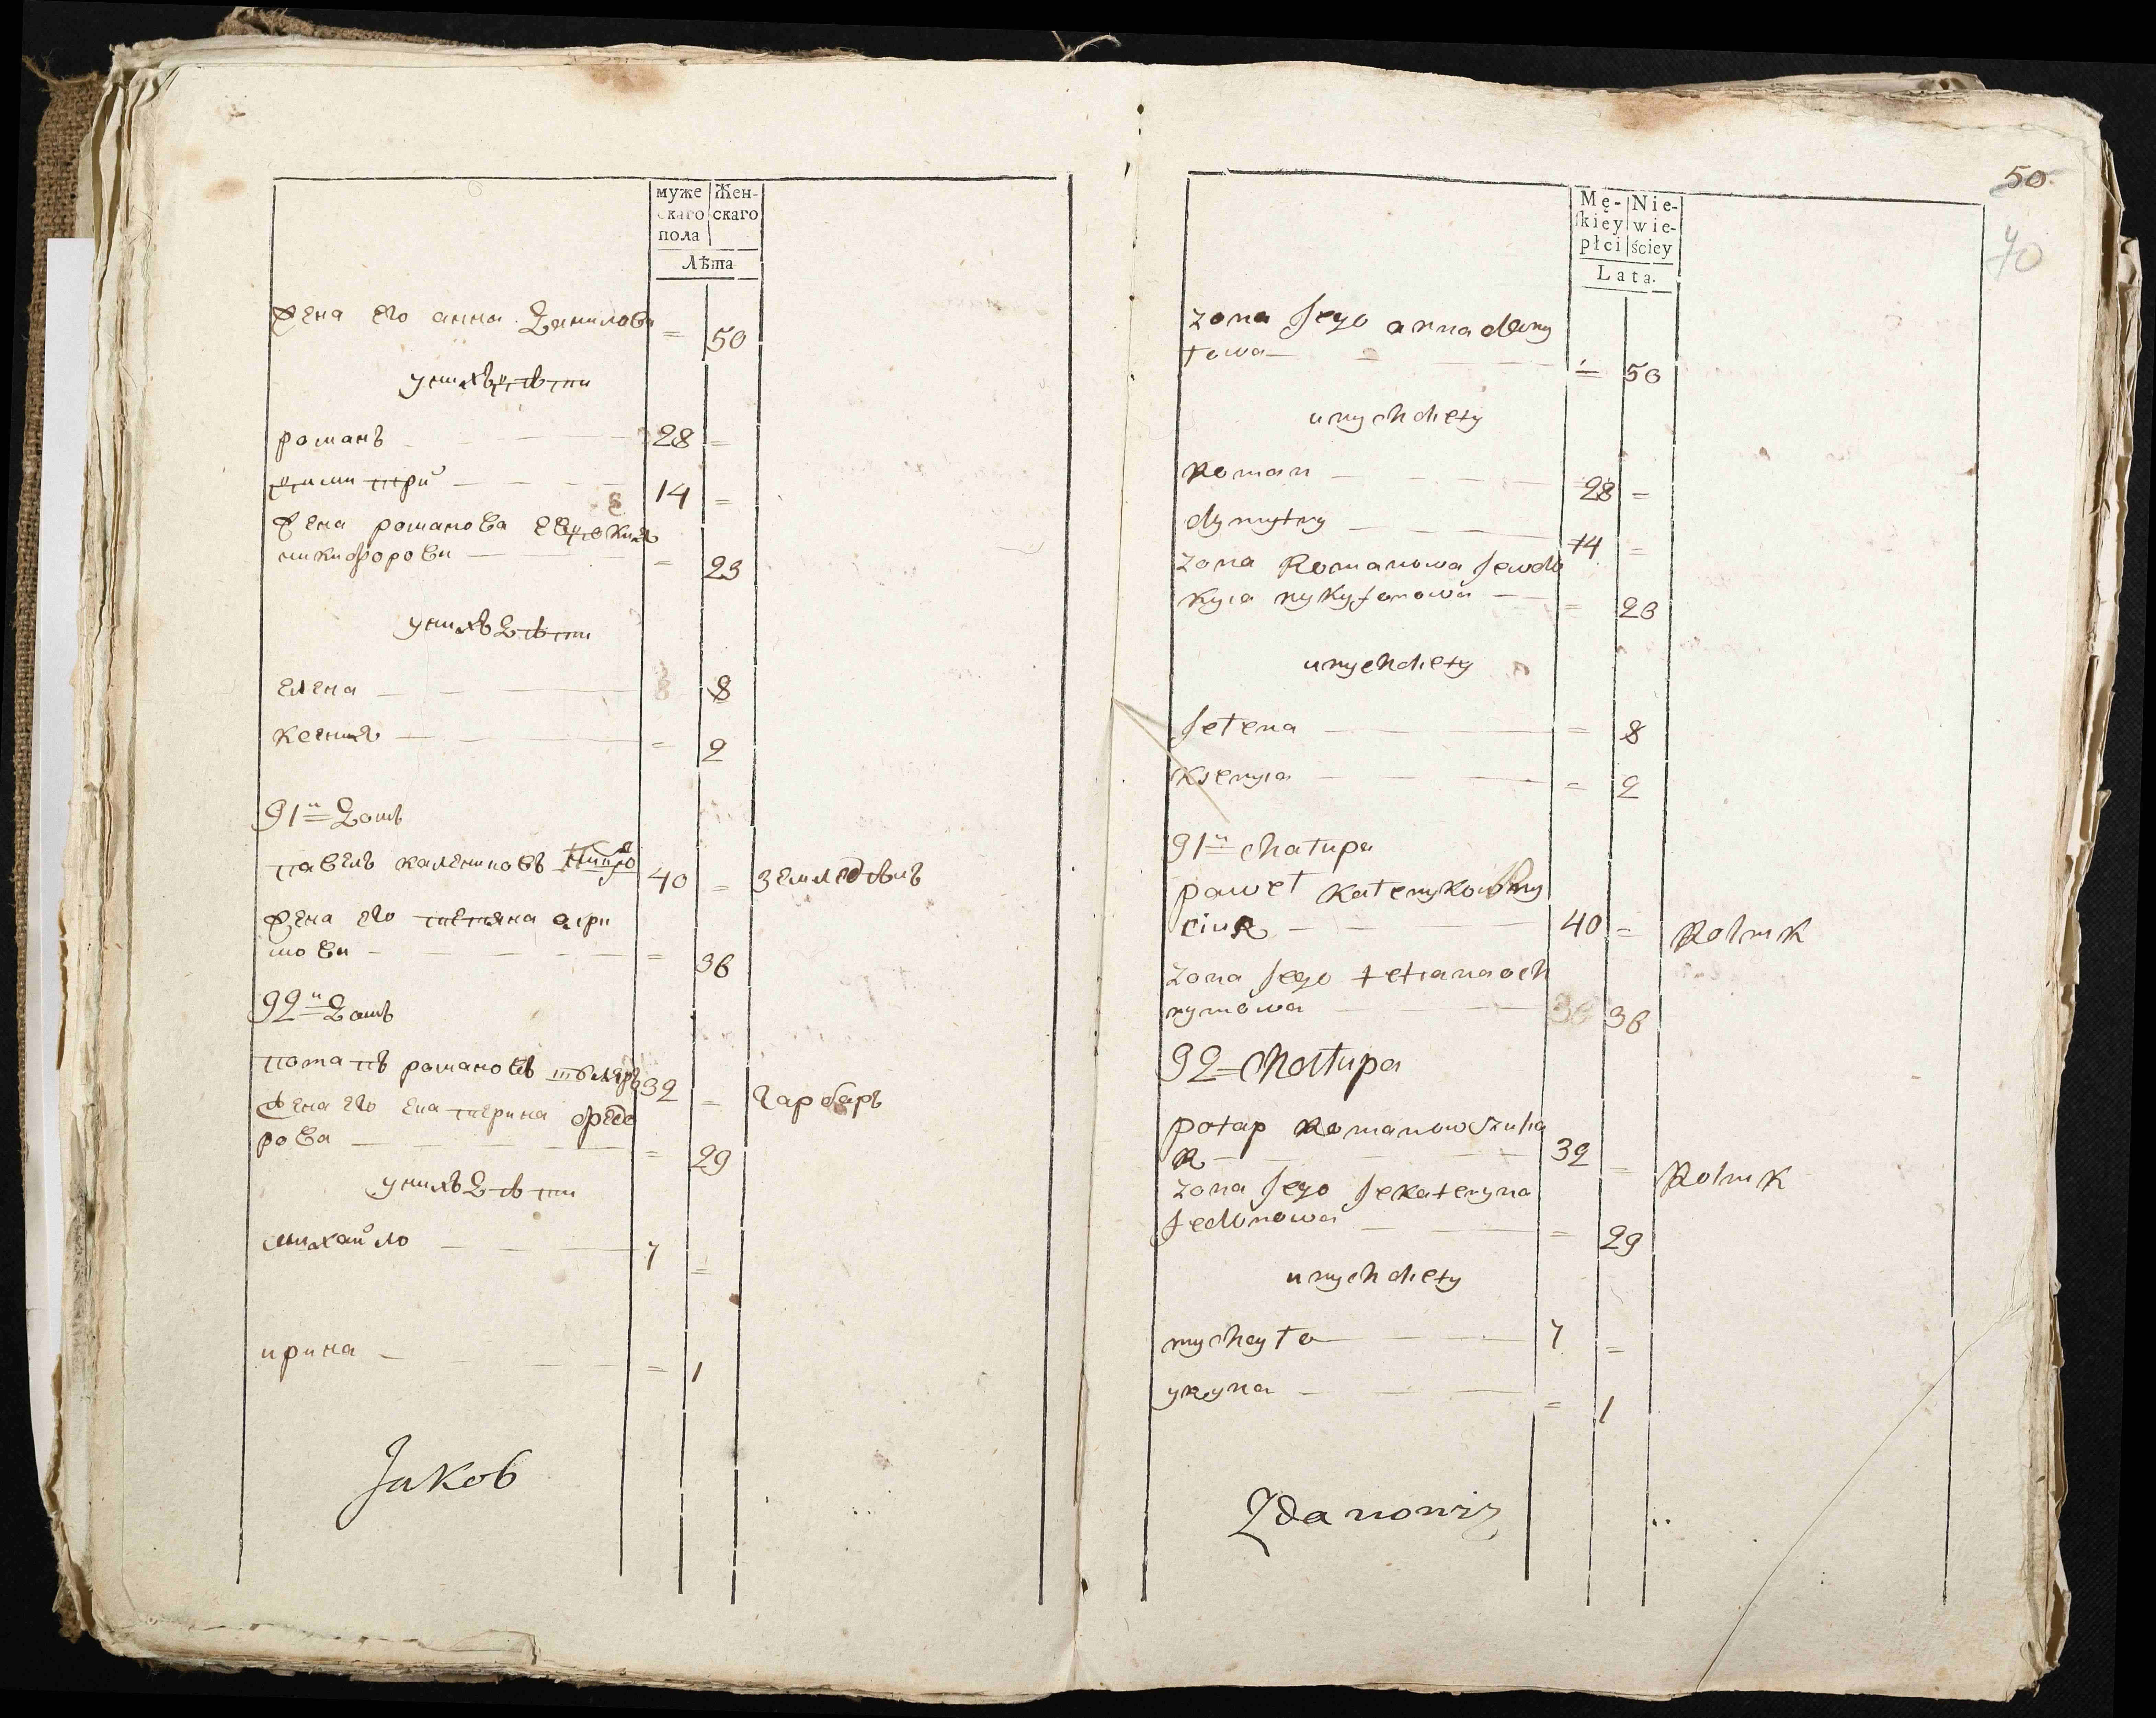 муже
скаго
пола
Жен-
скаго
Лѣта
жена его анна Данилова = 50
унихъ дѣти
романъ 28 =
дими трій 14 =
жена романова Евдокия
никифорова = 23
унихъ Дѣти
елена 8
ксения = 2
91й Домъ
павелъ калениковъ 40 = земледѣлъ
жена его татьяна ахри
мова = 36
92й Домъ
потапъ романовъ 32 = гарбаръ
жена его екатерина федо
рова = 29
унихъ Дѣти
михайло 7 =
ирина = 1
Jakob
50.
40
Mę-
skiey
płci
Nie-
wie-
ściey
Lata.
zona Jego anna dany
łowa = 50
unych diety
Roman 28 =
dymytry 14 =
zona Romanowa Jewdo
kyia nykyforowa = 23
unych diety
Jełena = 8
Ksenyia = 2
91й chałupa
paweł kałenykow
ciuk 40 = Rolnik
zona Jego tetiana och
rymowa 36
92 chałupa
potap Romanow Szula
R 32 = Rolnik
zona Jego Jekateryna
fedorowa = 29
unych diety
mychayło 7 =
yryna = 1
Zdanowiz